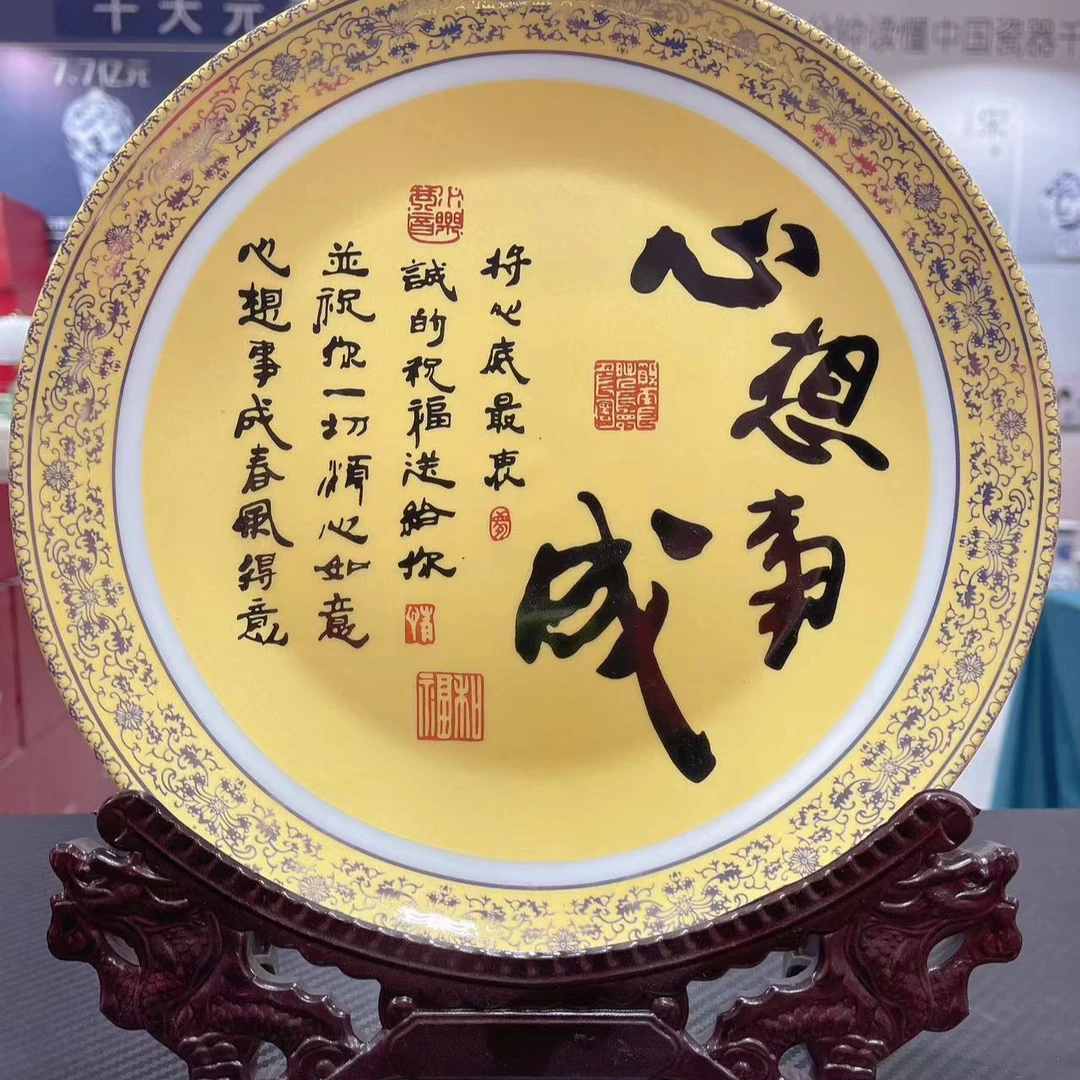 心想事成
将心底最衷
誠的祝福送給你
並祝你一切順心如意
心想事成春風得意
情
和福
十大元
7.7亿元
分钟读懂中国瓷器千
宋